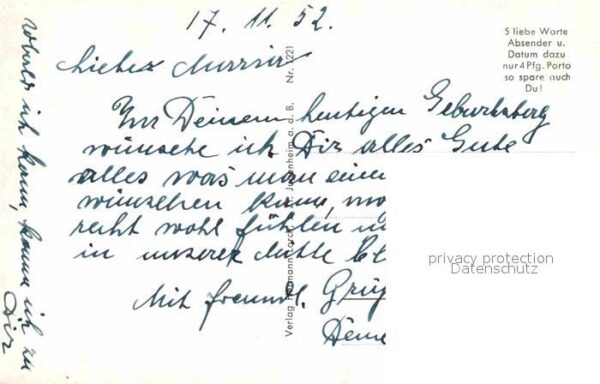 17.11.52.
5 liebe Worte
Absender u.
Datum dazu
nur 4 Pfg. Porto
so spare auch
Du!
Lieber
Zu Deinem heutigen Geburtstag
wünsche ich Dir alles Gute
alles was man einem
wünschen kann, mö
recht wohl fühlen u
in unserer Mitte
Mit freundl. Grüß
Deine
sobald ich kann, komme ich zu
Dir
Verlag Hermann Lorch, Jugenheim a. d. B. Nr. 1221
privacy protection
Datenschutz